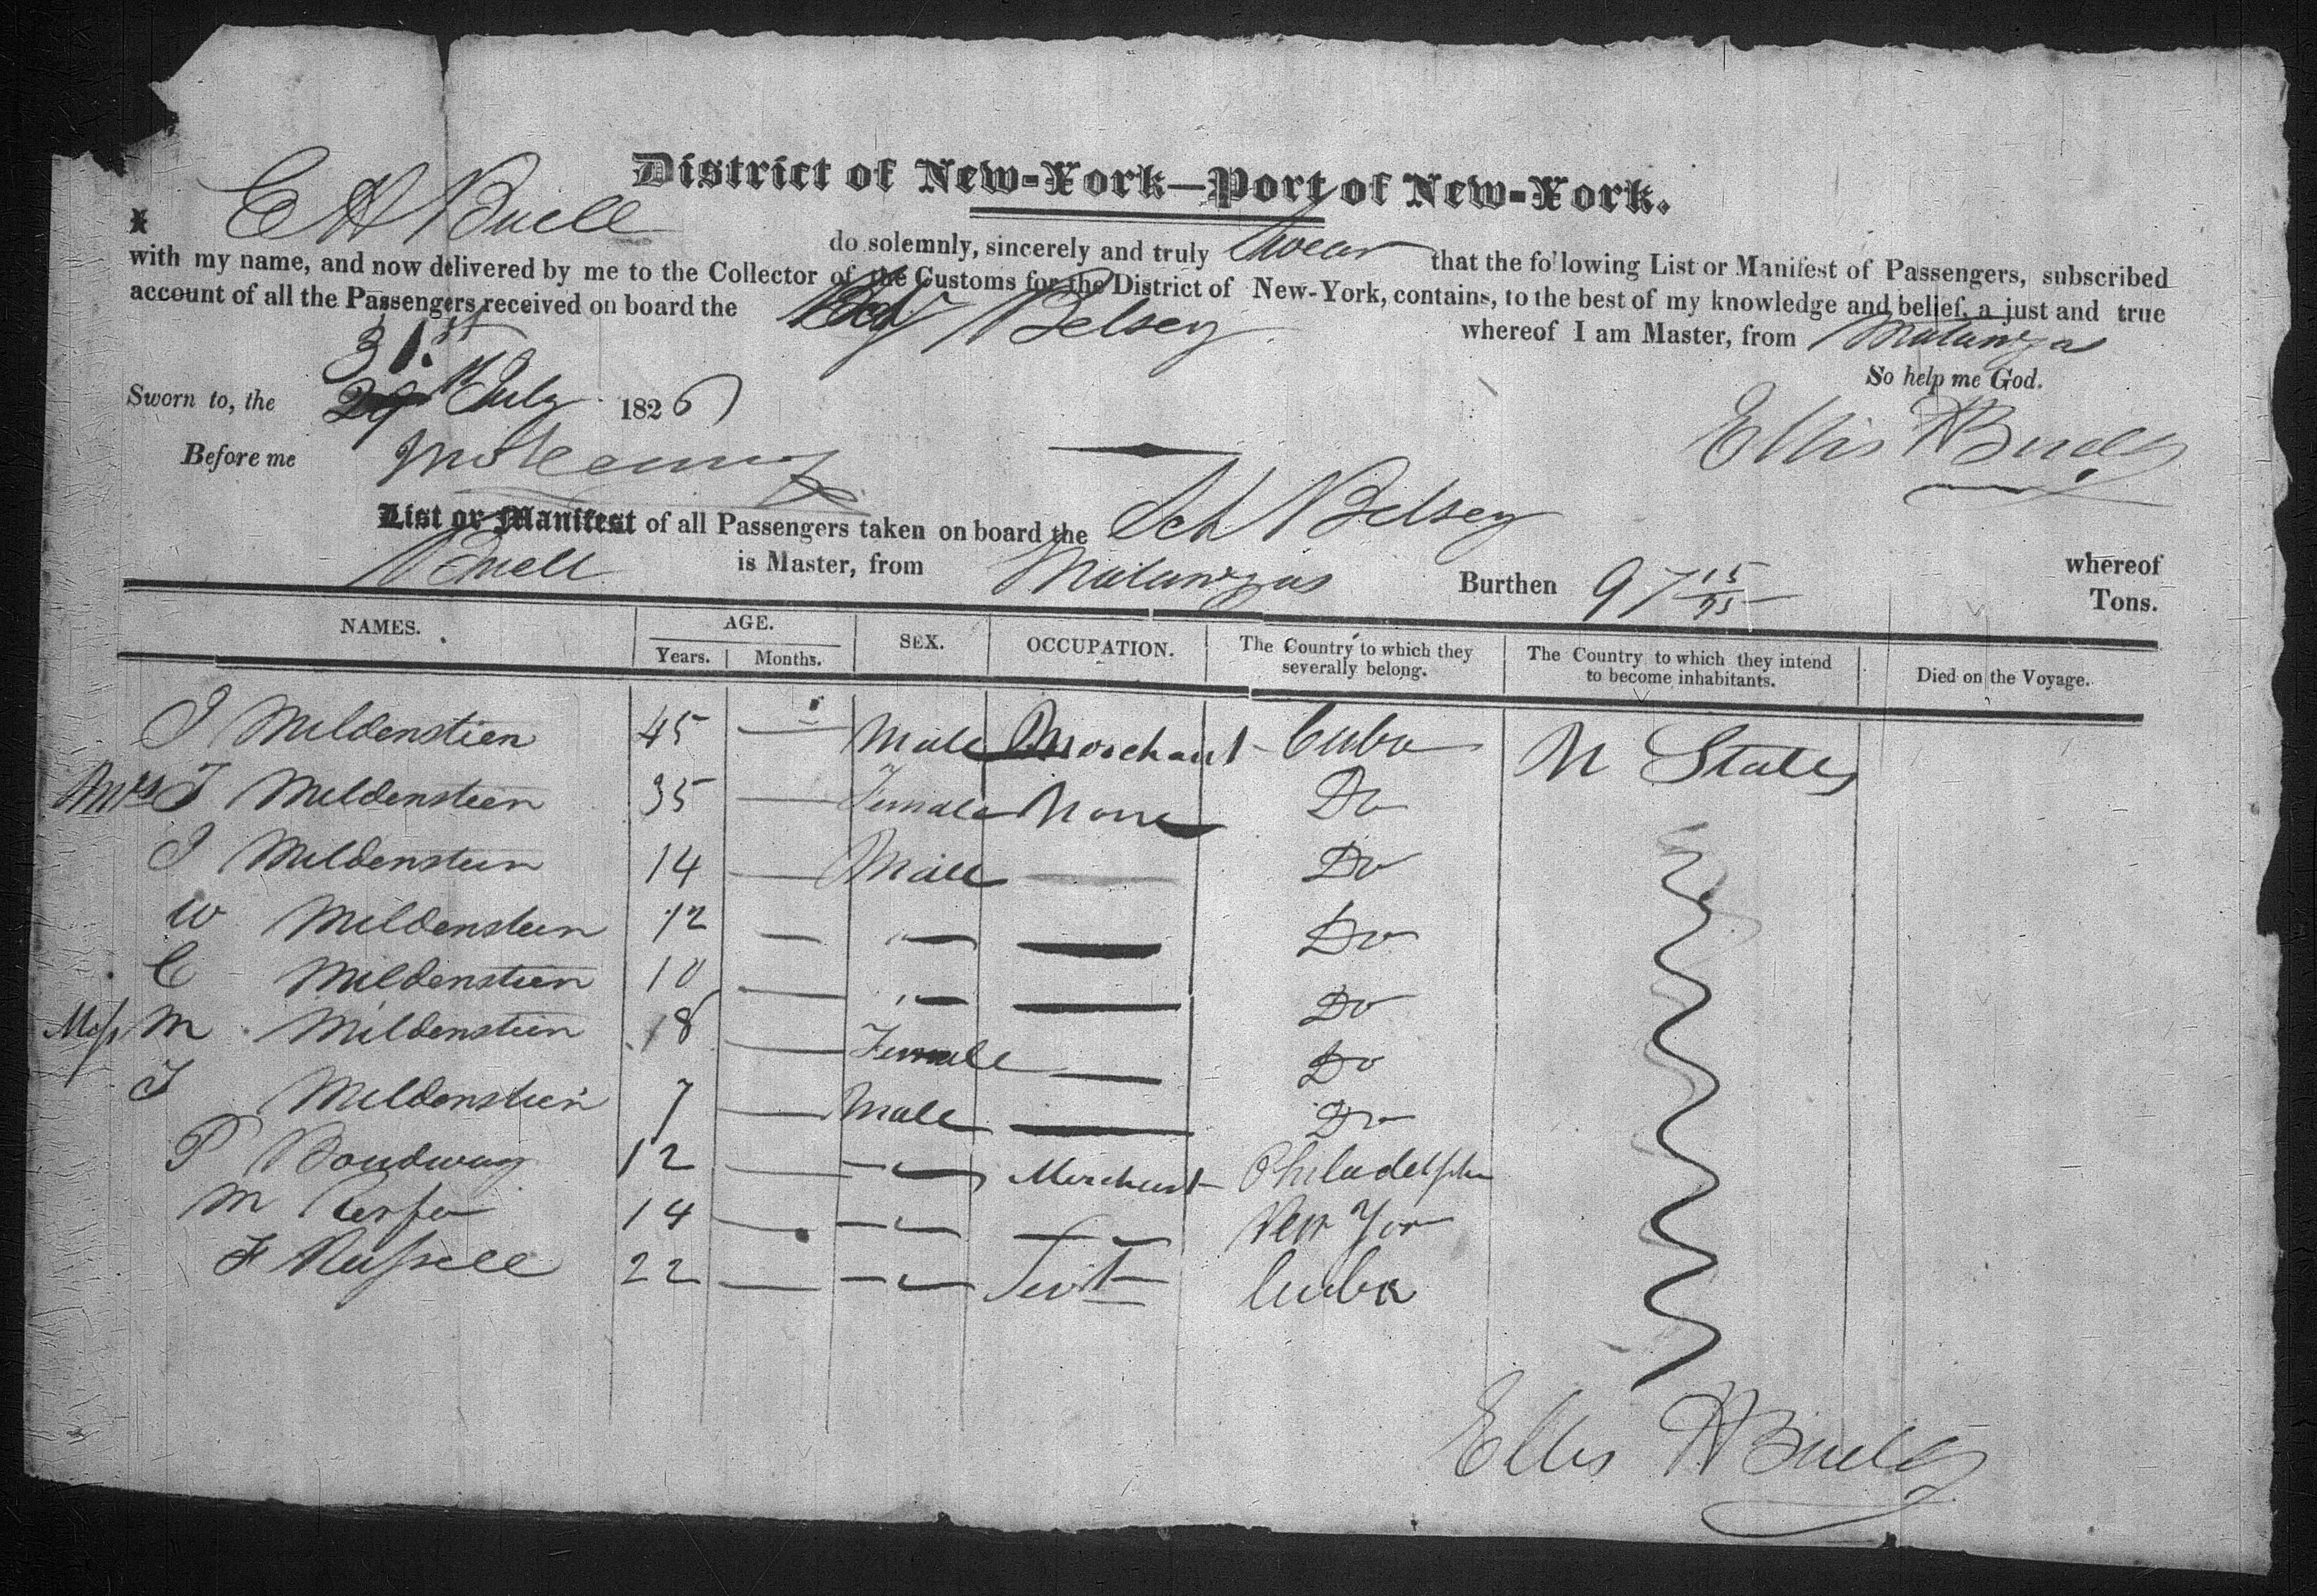 District of New-York—Port of New-York.
I E H Buell do solemnly, sincerely and truly Swear that the following List or Manifest of Passengers, subscribed
with my name, and now delivered by me to the Collector of the Customs for the District of New-York, contains, to the best of my knowledge and belief, a just and true
account of all the Passengers received on board the Belsey whereof I am Master, from Matanzas
So help me God.
31.st
Sworn to, the 29th July 1826
Ellis H Buell
Before me
List or Manifest of all Passengers taken on board the Sch Belsey whereof
Buell is Master, from Matanzas Burthen 97 15/95 Tons.
NAMES. AGE. SEX. OCCUPATION. The Country to which they severally belong. The Country to which they intend to become inhabitants. Died on the Voyage.
Years. Months.
J Mildenstien 45 — Male Merchant Cuba U States
Mrs J Mildenstien 35 — Female None Do
J Mildenstien 14 — Male — Do
W Mildenstien 12 — " — Do
C Mildenstien 10 — " — Do
Miss M Mildenstien 18 — Female — Do
J Mildenstien 7 — Male — Do
P Boudway 12 — " Merchant Philadelphia
M 14 — " — New Yor
F Russell 22 — " Cuba
Ellis H Buell